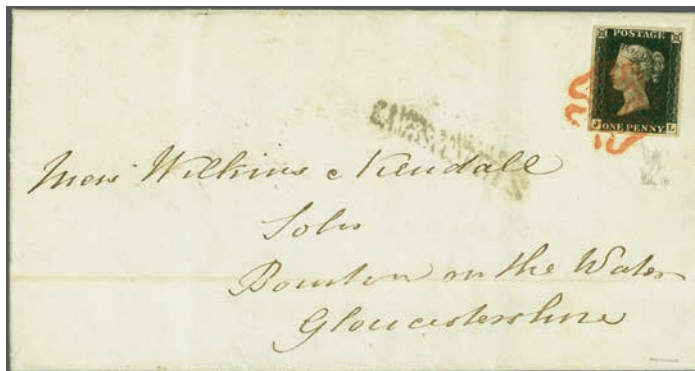 POSTAGE
ONE PENNY
J L
Mess Wilkins & Kendall
Solrs
Bourton on the Water
Gloucestershire